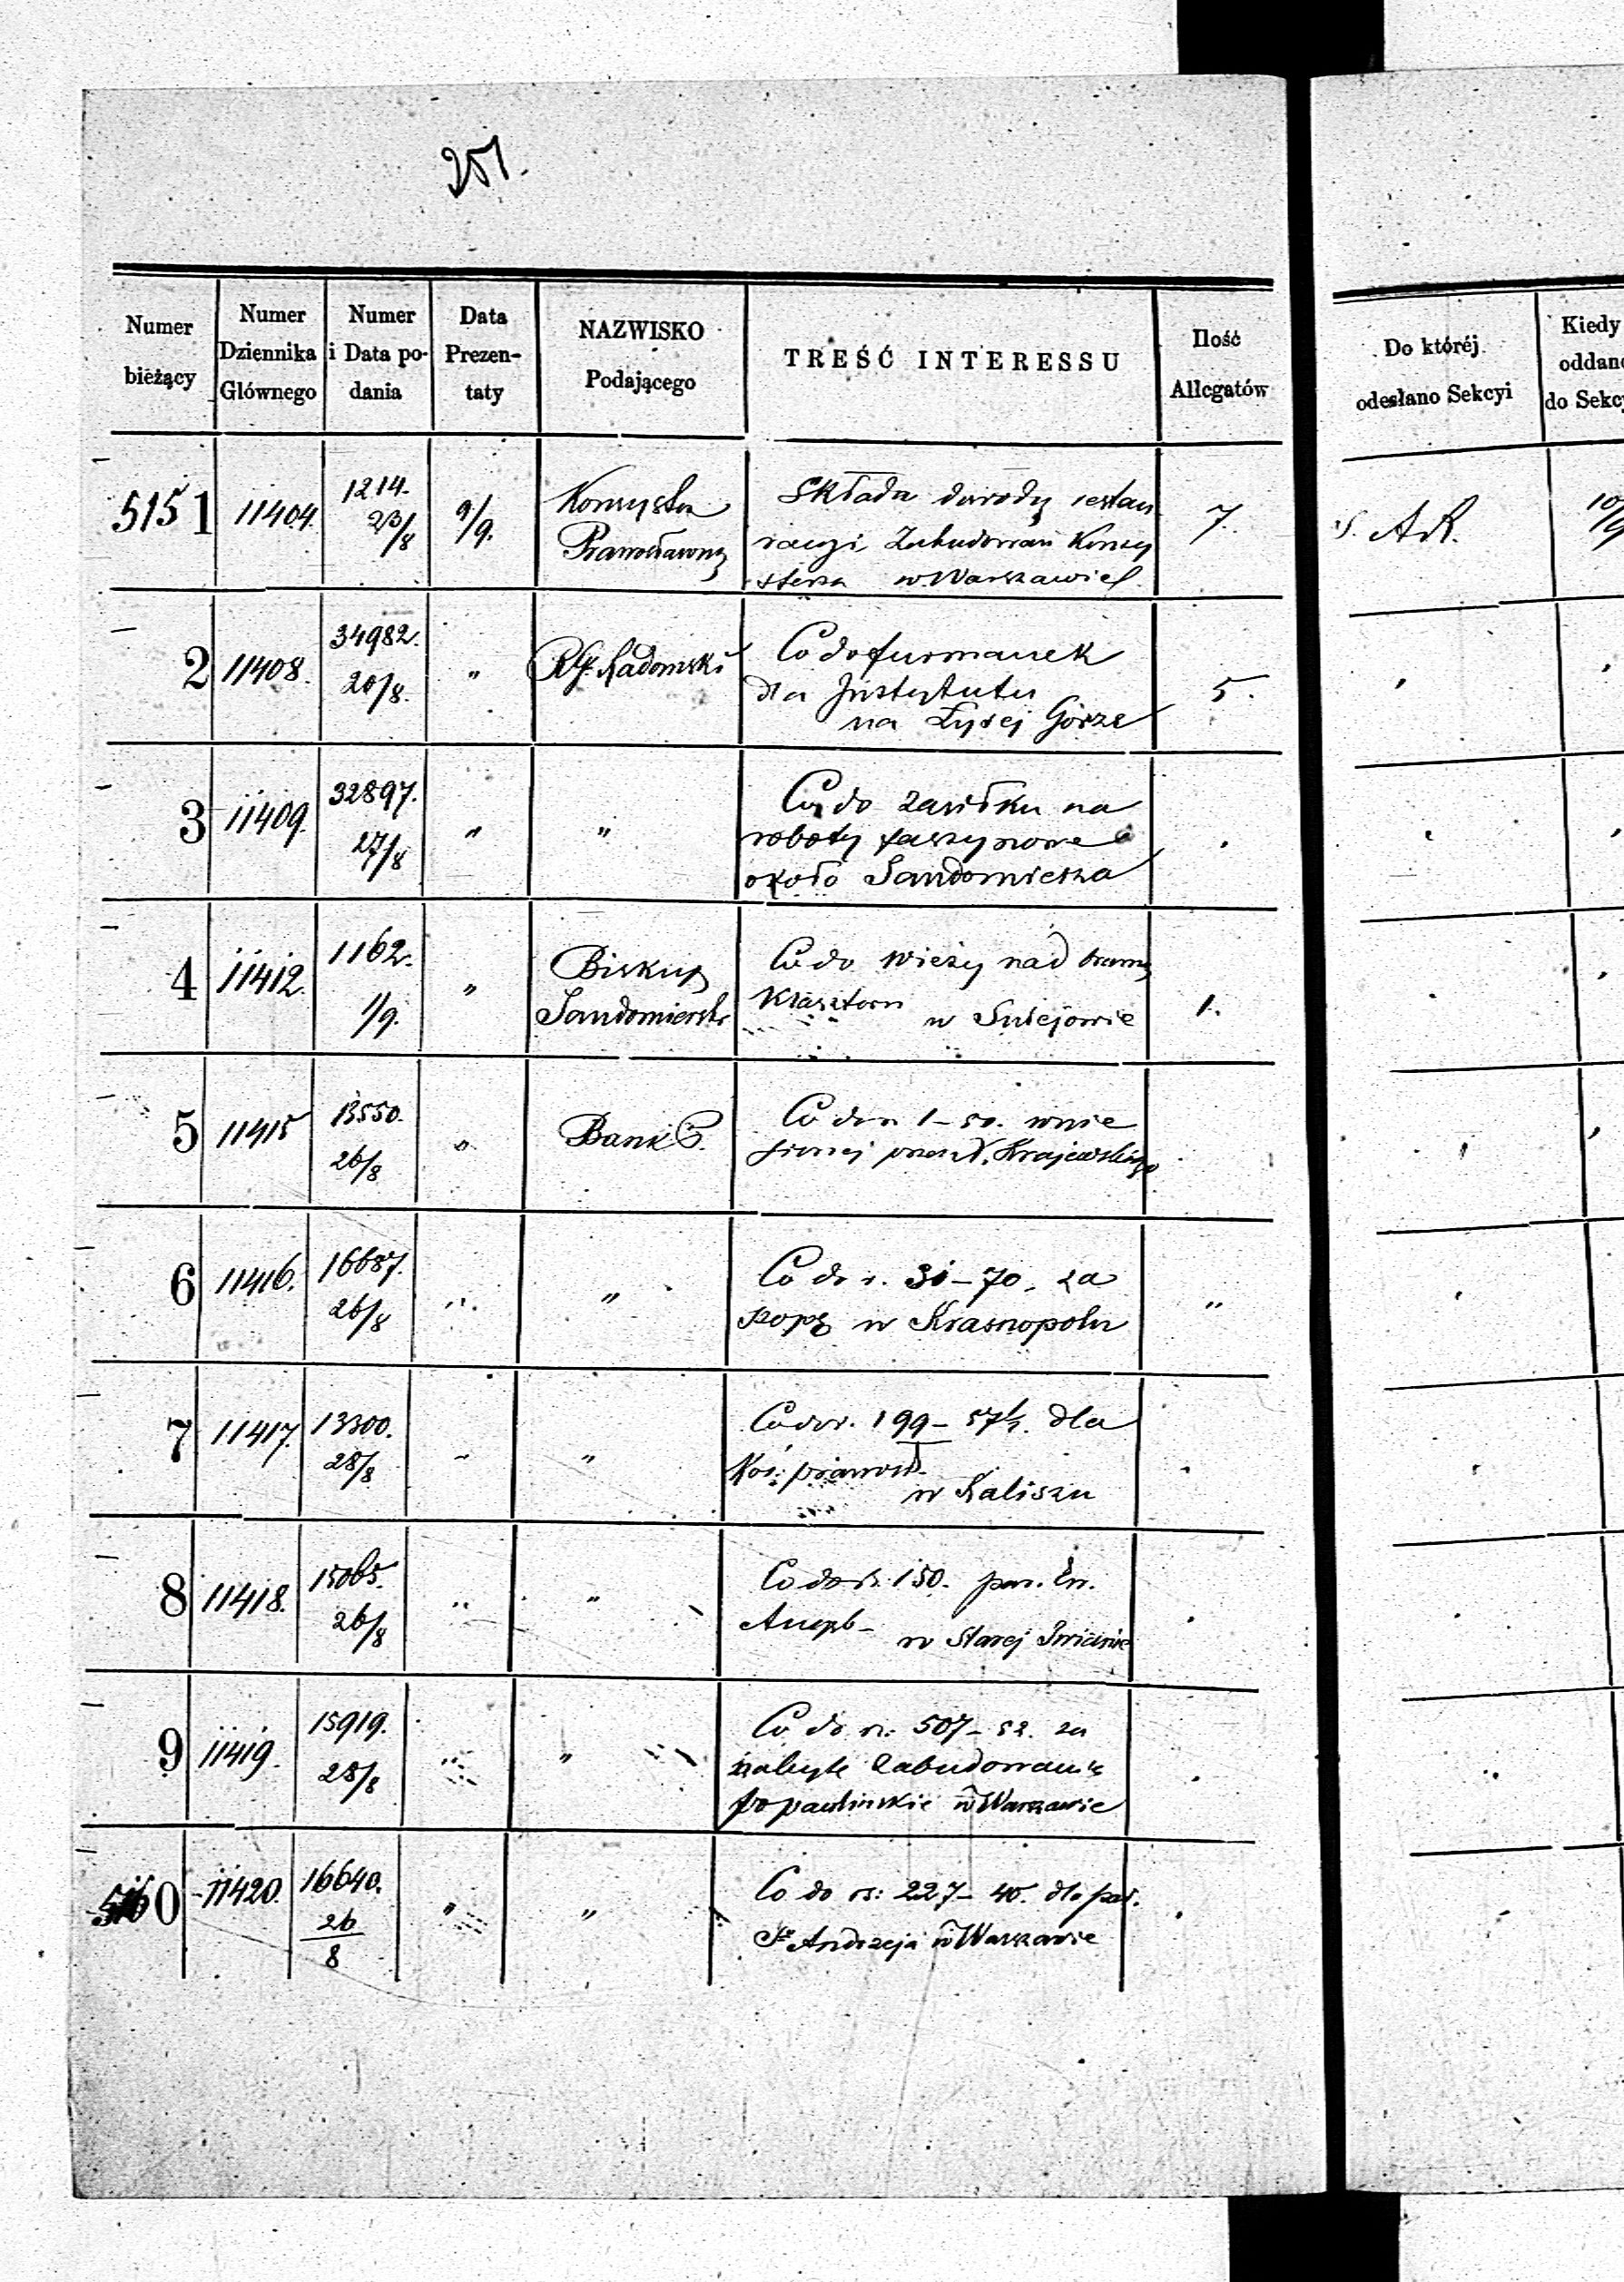 251.
Numer bieżący
Numer Dziennika Głównego
Numer i Data podania
Data Prezentaty
NAZWISKO Podającego
TREŚĆ INTERESSU
Ilość Allegatów
Do któréj odesłano Sekcyi
Kiedy oddano do Sekcy
5151 11404. 1214. 23/8 9/9. Konsystor Prawosławny
Składa dowody restau
racyi Zabudowań Konsy
sterza w Warszawie
7. S. AR. 10/9
2 11408. 34982. 20/8. " RG. Radomski
Co do furmanek
dla Instytutu
na Łysej Górze
5.
3 11409. 32897. 27/8 " "
Co do zasiłku na
roboty faszynowe
około Sandomierza
4 11412. 1162. 1/9. " Biskup Sandomierski
Co do wieży nad bramą
Klasztoru
w Sulejowie
1.
5 11415 13550. 26/8 " Bank P.
Co do rs 1-50. wnie
sionej przez Krajewskiego
6 11416. 16687. 26/8 " "
Co do r. 31-70. za
w Krasnopolu
"
7 11417. 13300. 28/8 " "
Co do r. 199-57½. dla
Koś: prawosł.
w Kaliszu
8 11418. 15065. 26/8 " "
Co do rs. 150. par. Ew.
Augsb-
w Starej
9 11419. 15919. 28/8 " "
Co do rs: 507-52. za
nabyte zabudowania
popaulińskie w Warszawie
5160 11420. 16640. 26/8 " "
Co do rs: 227-40. dla par.
Sgo Andrzeja w Warszawie